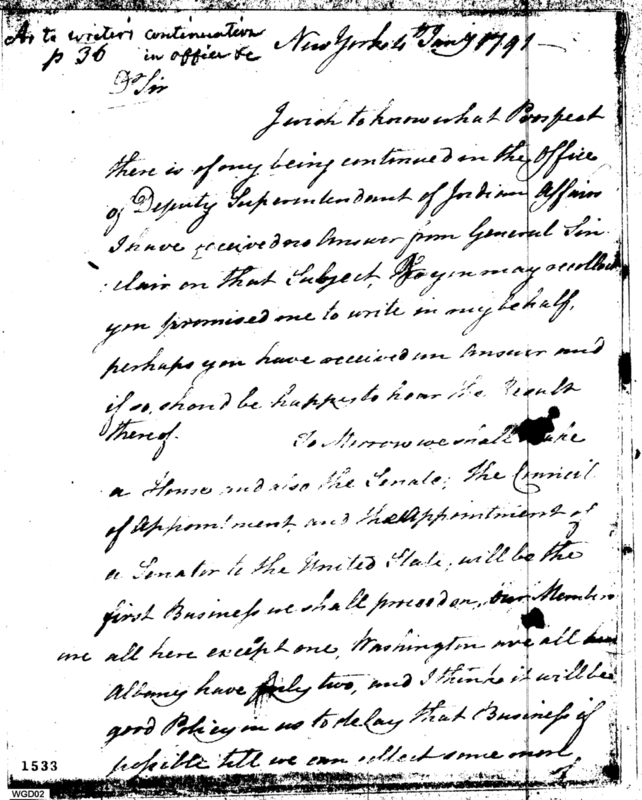 As to writer's continuation
p 36 in office &c
New York 4th Jany 1791
Dr Sir
I wish to know what Prospect
there is of my being continued in the Office
of Deputy Superintendant of Indian Affairs
I have received no Answer from General Sin
clair on that Subject, you may recollect
you promised me to write in my behalf,
perhaps you have received an Answer and
if so, shoud be happy to hear the Result
thereof. To Morrow we shall make
a House and also the Senate; The Council
of Appointment and the Appointment of
a Senator to the United State, will be the
first Business we shall proceed on, our Members
are all here except one, Washington are all
Albany have only two, and I think it will be
good Policy in us to delay that Business if
possible till we can collect some more
of
1533
WGD02